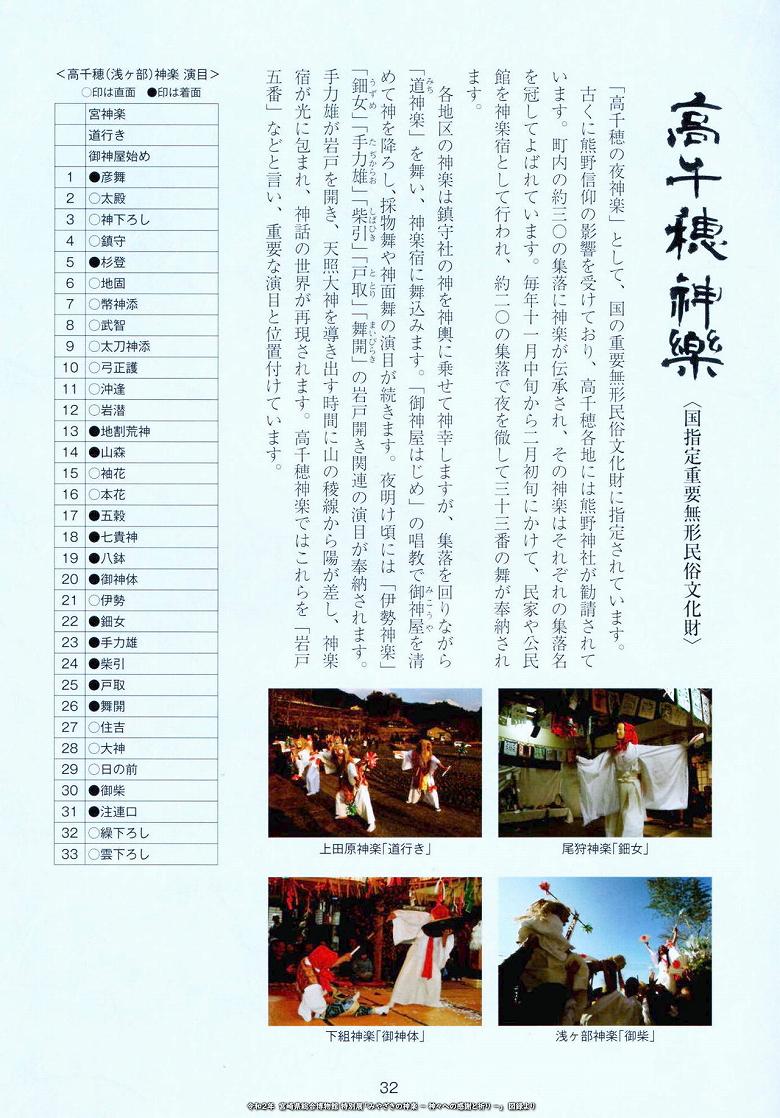 高千穂神楽
〈国指定重要無形民俗文化財〉
「高千穂の夜神楽」として、国の重要無形民俗文化財に指定されています。
古くに熊野信仰の影響を受けており、高千穂各地には熊野神社が勧請されて
います。町内の約三〇の集落に神楽が伝承され、その神楽はそれぞれの集落名
を冠してよばれています。毎年十一月中旬から二月初旬にかけて、民家や公民
館を神楽宿として行われ、約二〇の集落で夜を徹して三十三番の舞が奉納され
ます。
各地区の神楽は鎮守社の神を神輿に乗せて神幸しますが、集落を回りながら
「道神楽」を舞い、神楽宿に舞込みます。「御神屋はじめ」の唱教で御神屋を清
めて神を降ろし、採物舞や神面舞の演目が続きます。夜明け頃には「伊勢神楽」
「鈿女」「手力雄」「柴引」「戸取」「舞開」の岩戸開き関連の演目が奉納されます。
手力雄が岩戸を開き、天照大神を導き出す時間に山の稜線から陽が差し、神楽
宿が光に包まれ、神話の世界が再現されます。高千穂神楽ではこれらを「岩戸
五番」などと言い、重要な演目と位置付けています。
みち
みこうや
うずめ
たぢからお
しばひき
ととり
まいびらき
<高千穂(浅ヶ部)神楽 演目>
○印は直面 ●印は着面
宮神楽
道行き
御神屋始め
1 ●彦舞
2 ○太殿
3 ○神下ろし
4 ○鎮守
5 ●杉登
6 ○地固
7 ○幣神添
8 ○武智
9 ○太刀神添
10 ○弓正護
11 ○沖逢
12 ○岩潜
13 ●地割荒神
14 ●山森
15 ○袖花
16 ○本花
17 ●五穀
18 ●七貴神
19 ●八鉢
20 ●御神体
21 ○伊勢
22 ●鈿女
23 ●手力雄
24 ●柴引
25 ●戸取
26 ●舞開
27 ○住吉
28 ○大神
29 ○日の前
30 ●御柴
31 ●注連口
32 ○繰下ろし
33 ○雲下ろし
上田原神楽「道行き」
尾狩神楽「鈿女」
下組神楽「御神体」
浅ヶ部神楽「御柴」
32
令和2年 宮崎県総合博物館 特別展「みやざきの神楽 － 神々への感謝と祈り －」 図録より